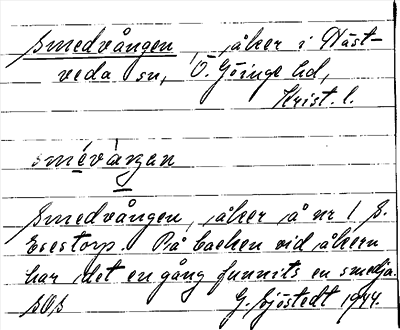 Smedvången, åker i Häst-
veda sn, Ö. Göinge hd,
Krist. l.
smévàŋan
Smedvången, åker å nr 1 S.
Esestorp. På backen vid åkern
har det en gång funnits en smedja.
G. Sjöstedt 1944.